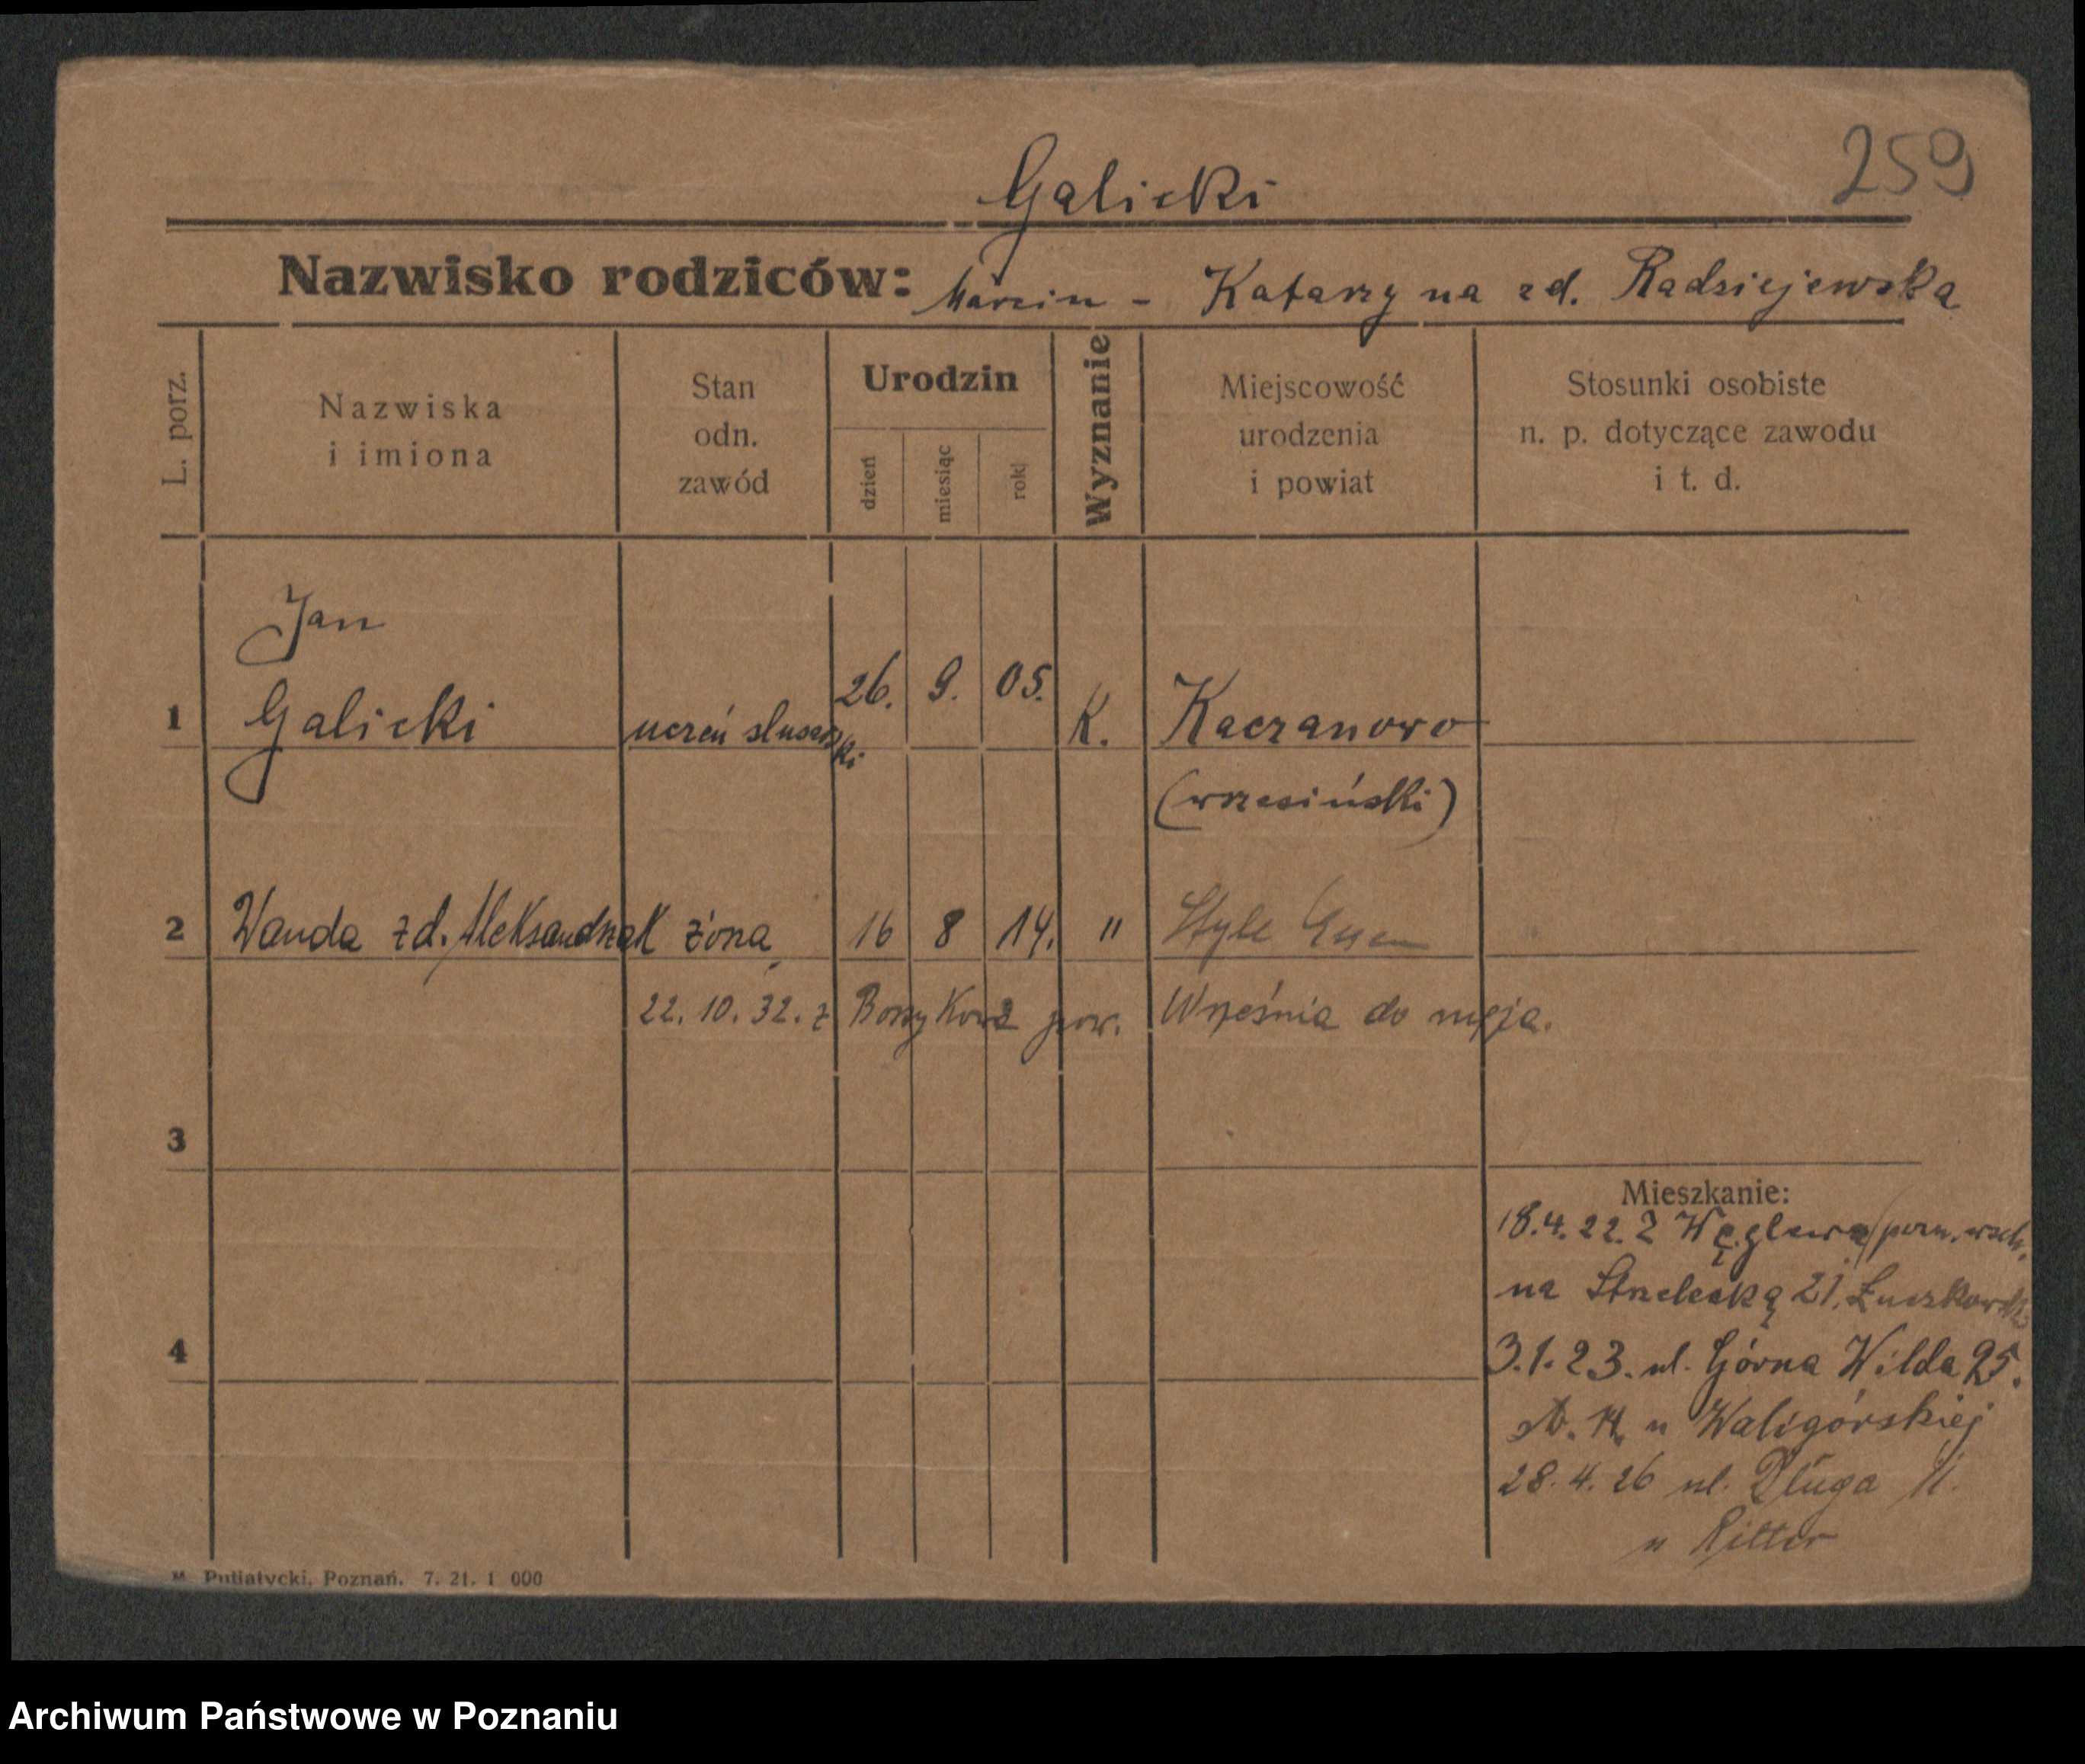 259
Galicki
Nazwisko rodziców: Marcin - Katarzyna zd. Radziejewska
L. porz.
Nazwiska
i imiona
Stan
odn.
zawód
Urodzin
dzień
miesiąc
rok
Wyznanie
Miejscowość
urodzenia
i powiat
Stosunki osobiste
n. p. dotyczące zawodu
i t. d.
Jan
1 Galicki uczeń ślusarski 26. 9. 05. K. Kaczanowo
(wrzesiński)
2 Wanda zd. Aleksandrzak żona 16 8 14. " Essen
22. 10. 32. z pow. Września do męża.
3
Mieszkanie:
18.4.22. Z Węglewa pozn. wsch.
na Strzelecką 21.
4
3.1.23. ul. Górna Wilda 95.
u Waligórskiej
28.4.26 ul. Długa 11.
u Ritter
M. Putiatycki, Poznań. 7. 21. 1 000
Archiwum Państwowe w Poznaniu